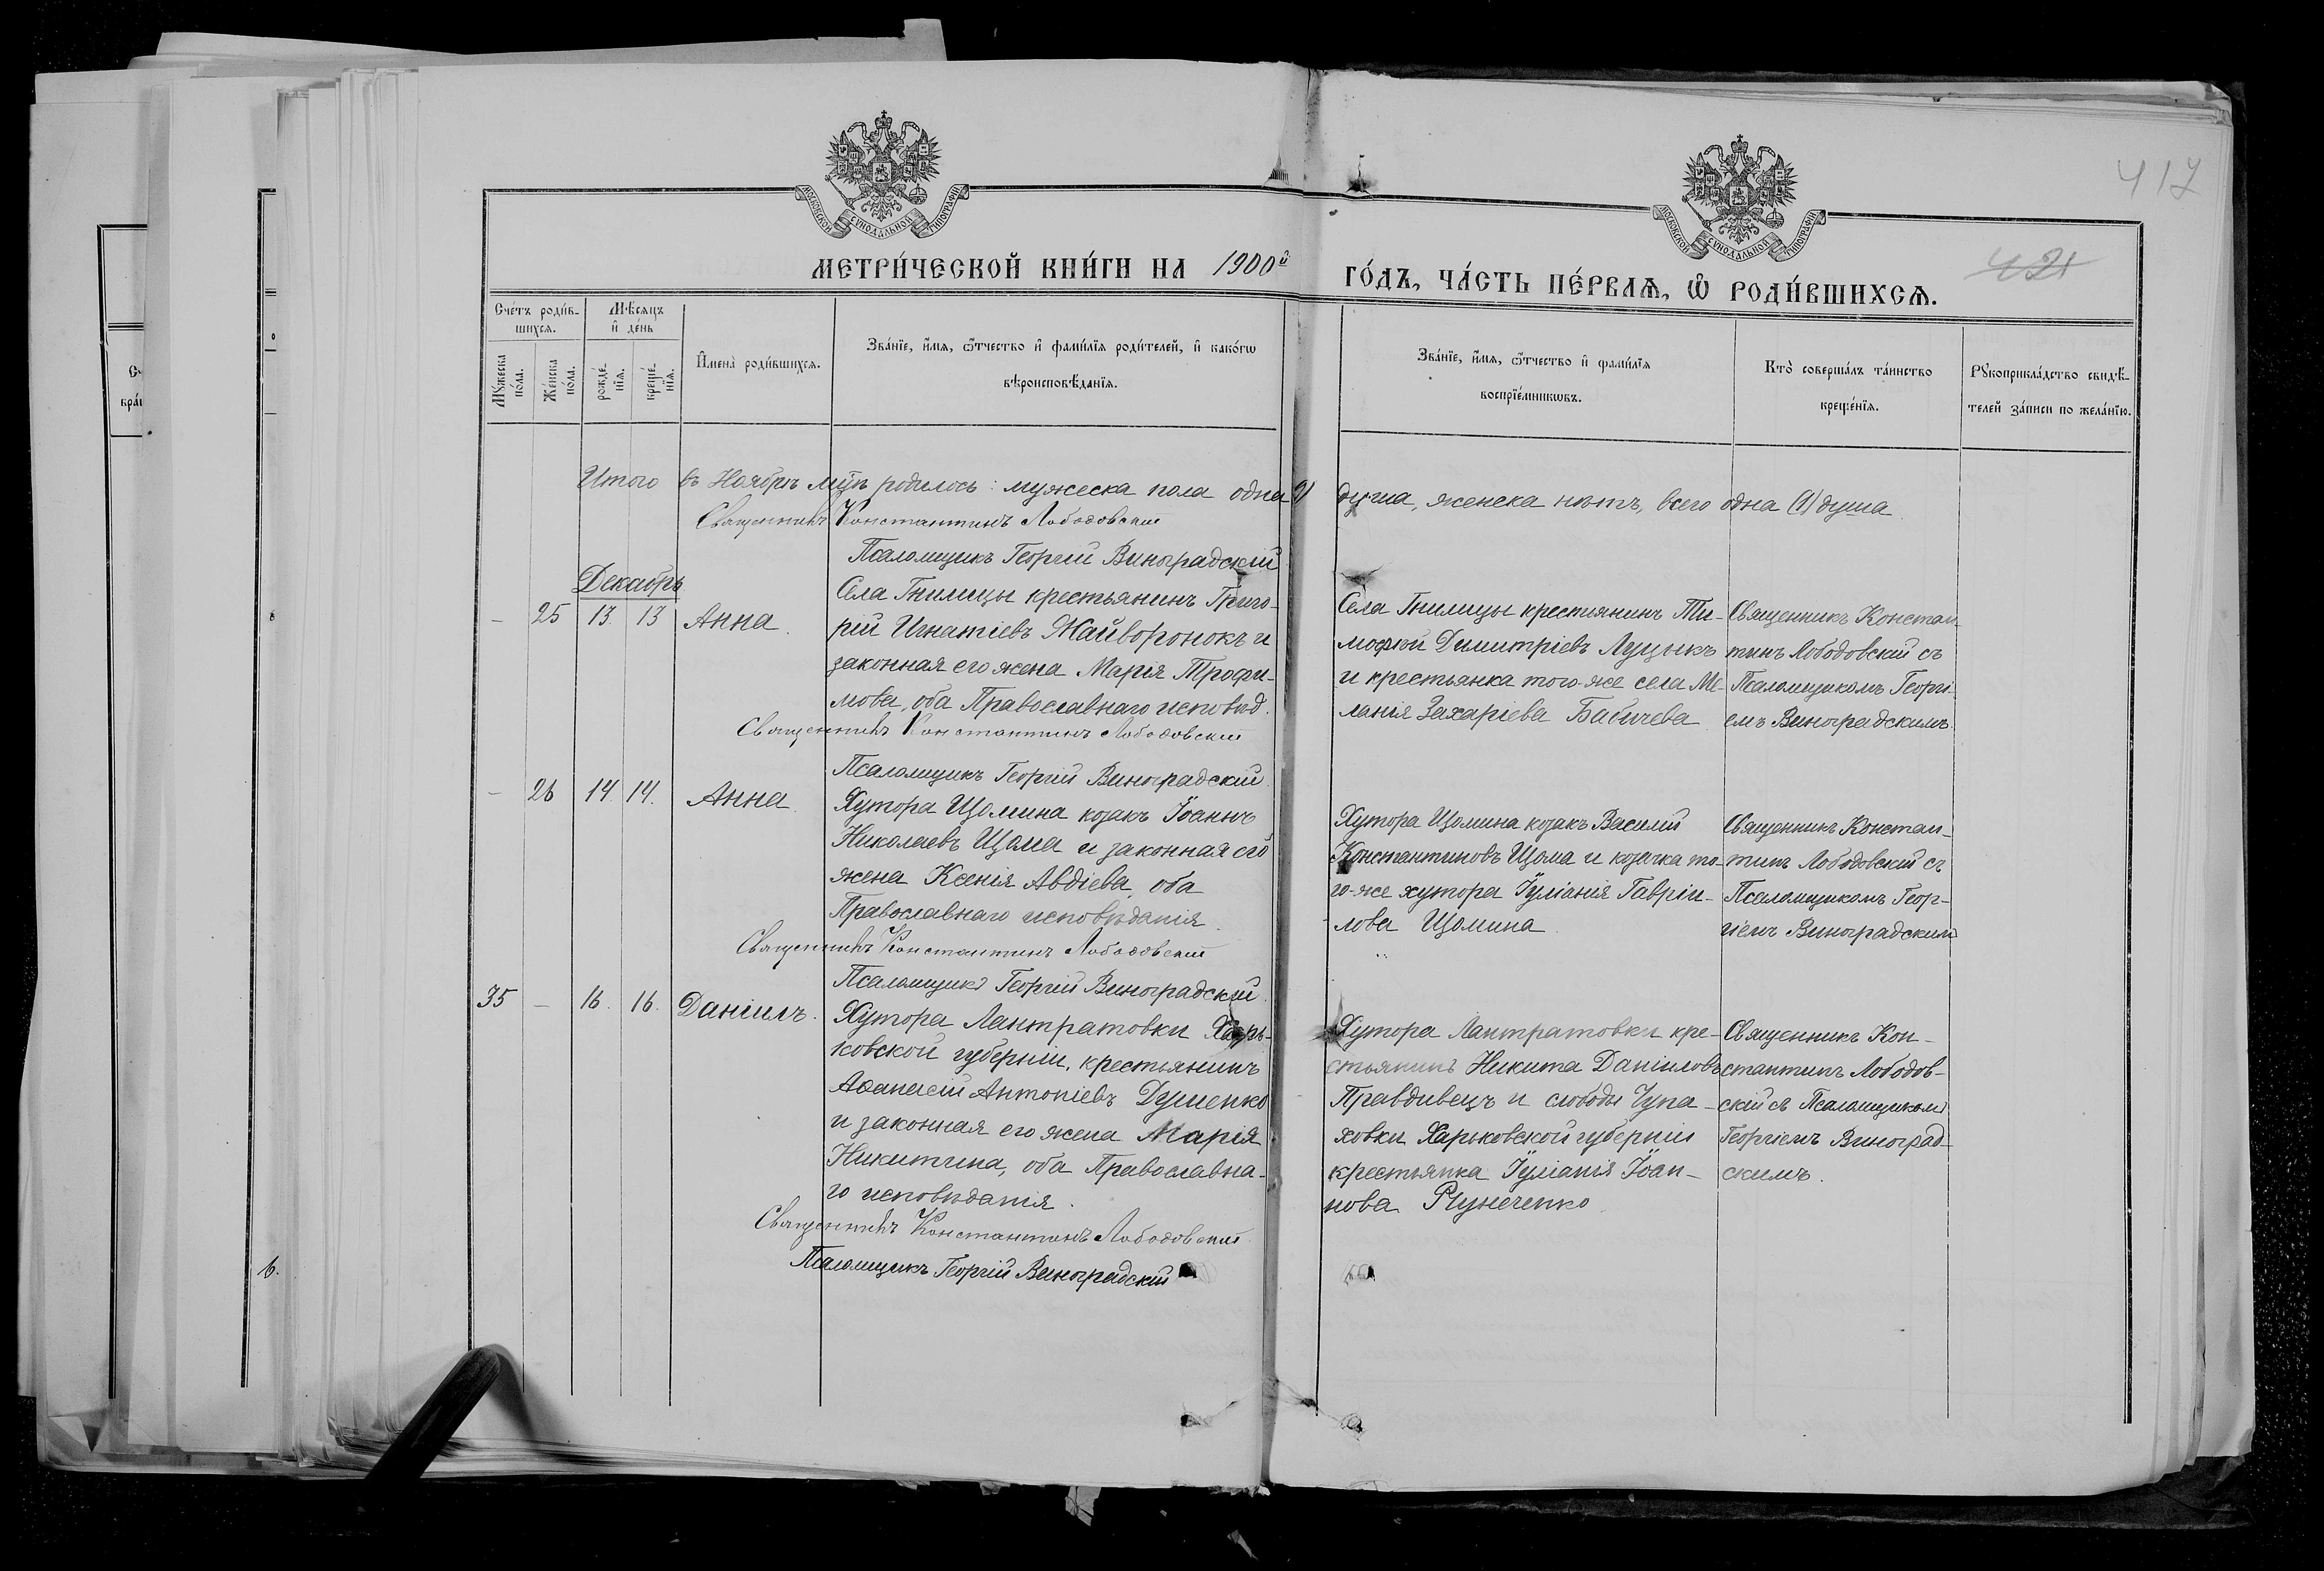 417
421
МОСКОВСКОЙ СѴНОДАЛЬНОЙ ТИПОГРАФІИ
МОСКОВСКОЙ СѴНОДАЛЬНОЙ ТИПОГРАФІИ
МЕТРИ́ЧЕСКОЙ КНИ́ГИ НА 1900й ГО́ДЪ, ЧА́СТЬ ПЕ́РВАѦ, Ѡ҆ РОДИ́ВШИХСѦ.
Сче́тъ роди́в-
шихся.
Мꙋ́жеска
по́ла.
Же́нска
по́ла.
Мѣ́сяцъ
и҆ де́нь
рожде́-
нїя.
креще́-
нїя.
И҆мена̀ роди́вшихся.
Зва́нїе, и҆́мя, ѻ҆́тчество и҆ фами́лїя роди́телей, и҆ како́гѡ
вѣроисповѣ́данїя.
Зва́нїе, и҆́мя, ѻ҆́тчество и҆ фами́лїя
воспрїе́мникѡвъ.
Кто̀ соверша́лъ та́инство
креще́нїя.
Рꙋкоприкла́дство свидѣ́-
телей за́писи по жела́нїю.
Итого въ Ноябрѣ мцѣ родилось: мужеска пола одна (1) душа, женска нѣтъ, всего одна (1) душа
Священникъ Константинъ Лободовскій
Псаломщикъ Георгій Виноградскій
Декабрь
- 25 13 13 Анна.
Села Гнилицы крестьянинъ Григо-
рій Игнатіевъ Жайворонокъ и
законная его жена Марія Трофи-
мова, оба Православнаго исповѣд.
Села Гнилицы крестьянинъ Ти-
мофѣй Димитріевъ Луцыкъ
и крестьянка того-же села Ме-
ланія Захаріева Бабичева
Священникъ Констан-
тинъ Лободовскій съ
Псаломщикомъ Георгі-
емъ Виноградскимъ.
Священникъ Константинъ Лободовскій
Псаломщикъ Георгій Виноградскій
- 26 14 14. Анна.
Хутора Щомина козакъ Іоаннъ
Николаевъ Щома и законная его
жена Ксенія Авдіева, оба
Православнаго исповѣданія.
Хутора Щомина козакъ Василій
Константиновъ Щома и козачка то-
го-же хутора Іуліанія Гавріи-
лова Щомина.
Священникъ Констан-
тинъ Лободовскій съ
Псаломщикомъ Геор-
гіемъ Виноградскимъ
Священникъ Константинъ Лободовскій
Псаломщикъ Георгій Виноградскій.
35 - 16. 16. Даніилъ.
Хутора Лантратовки Харь-
ковской губерніи, крестьянинъ
Аѳанасій Антоніевъ Душенко
и законная его жена Марія
Никитина, оба Православна-
го исповѣданія.
Хутора Лантратовки кре-
стьянинъ Никита Даніиловъ
Правдивецъ и слободы Чупа-
ховки Харьковской губерніи
крестьянка Іуліанія Іоан-
нова
Священникъ Кон-
стантинъ Лободов-
скій съ Псаломщикомъ
Георгіемъ Виноград-
скимъ.
Священникъ Константинъ Лободовскій
Псаломщикъ Георгій Виноградскій
6.